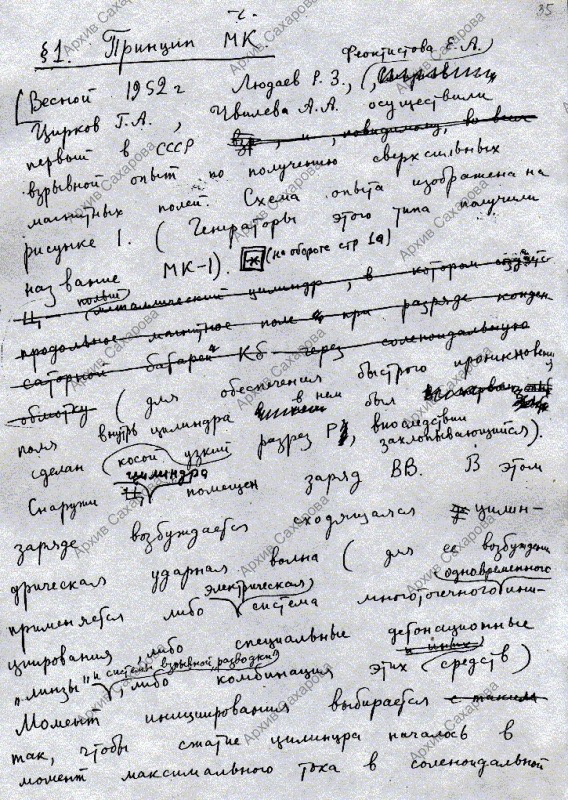 -2-
35
§1. Принцип МК.
[Весной 1952 г Людаев Р.З., (Феоктистова Е.А.)
Цирков Г.А., Чвилева А.А. осуществили
первый в СССР
взрывной опыт по получению сверхсильных
магнитных полей. Схема опыта изображена на
рисунке 1. (Генераторы этого типа получили
название МК-1). (на обороте стр 1а)
В полый металлический цилиндр, в котором создаётся
продольное магнитное поле при разряде конден-
саторных батарей Кб через соленоидальную
обмотку (для обеспечения быстрого проникновения
поля внутрь цилиндра в нем был
сделан косой узкий разрез Р, впоследствии захлопывающийся).
Снаружи цилиндра помещен заряд ВВ. В этом
заряде возбуждается сходящаяся цилин-
дрическая ударная волна (для ее возбуждения
применяется либо электрическая система одновременного многоточечного ини-
циирования, либо специальные детонационные
"линзы" и системы взрывной разводки", либо комбинация этих и иных средств)
Момент инициирования выбирается с таким
так, чтобы сжатие цилиндра началось в
момент максимального тока в соленоидальной
Архив Сахарова